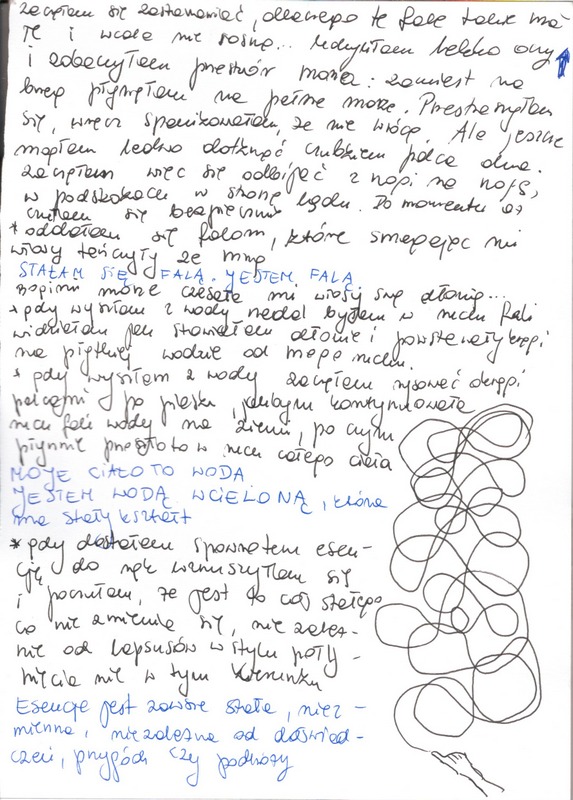 zaczęłam się zastanawiać, dlaczego te fale takie ma-
łe i wcale nie rosną... uchyliłam lekko oczy
i zobaczyłam przestwór morza: zamiast na
brzeg płynęłam na pełne morze. Przestraszyłam
się, wręcz spanikowałam, że nie wrócę. Ale jeszcze
mogłam ledwo dotknąć czubkiem palca dna.
zaczęłam więc się odbijać z nogi na nogę,
w podskokach w stronę lądu. Do momentu aż
czułam się bezpiecznie
* oddałam się falom, które smagając mi
włosy tańczyły ze mną
STAŁAM SIĘ FALĄ. JESTEM FALĄ
bogini morze czesała mi włosy swą dłonią...
* gdy wyszłam z wody nadal byłam w ruchu fali
widziałam jak stawiałam dłonie i powstawały kręgi
na płytkiej wodzie od mego ruchu.
* gdy wyszłam z wody zaczęłam rysować okręgi
palcami po piasku, jakbym kontynuowała
ruch fali wody na ziemi, po czym
płynnie przeszło to w ruch całego ciała
MOJE CIAŁO TO WODA
JESTEM WODĄ WCIELONĄ, która
ma stały kształt
* gdy dostałam spowrotem esen-
cję do rąk wzruszyłam się
i poczułam, że jest to coś stałego
co nie zmienia się, nie zależ-
nie od lapsusów w stylu poty-
nięcia nie w tym kierunku
Esencja jest zawsze stała, niez-
mienna, niezależna od doświad-
czeń, przygód czy podróży